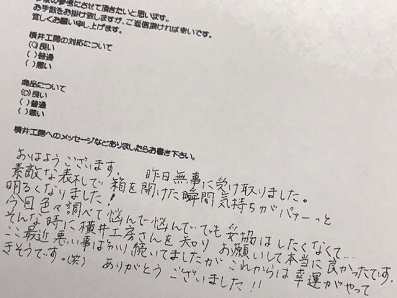 参考にさせて頂きたいと思います。
お手数をお掛け致しますが、ご返信頂ければ幸いです。
宜しくお願い申し上げます。
横井工房の対応について
(○)良い
( )普通
( )悪い
商品について
(○)良い
( )普通
( )悪い
横井工房へのメッセージなどありましたらお書き下さい。
おはようございます。 昨日無事に受け取りました。
素敵な表札で 箱を開けた瞬間気持ちがパァーっと
明るくなりました!
今回色々調べて悩んで悩んででも妥協はしたくなくて…
そんな時に横井工房さんを知り お願いして本当に良かったです。
ここ最近悪い事ばかり続いてましたが これからは幸運がやって
きそうです。(笑) ありがとう ございました!!